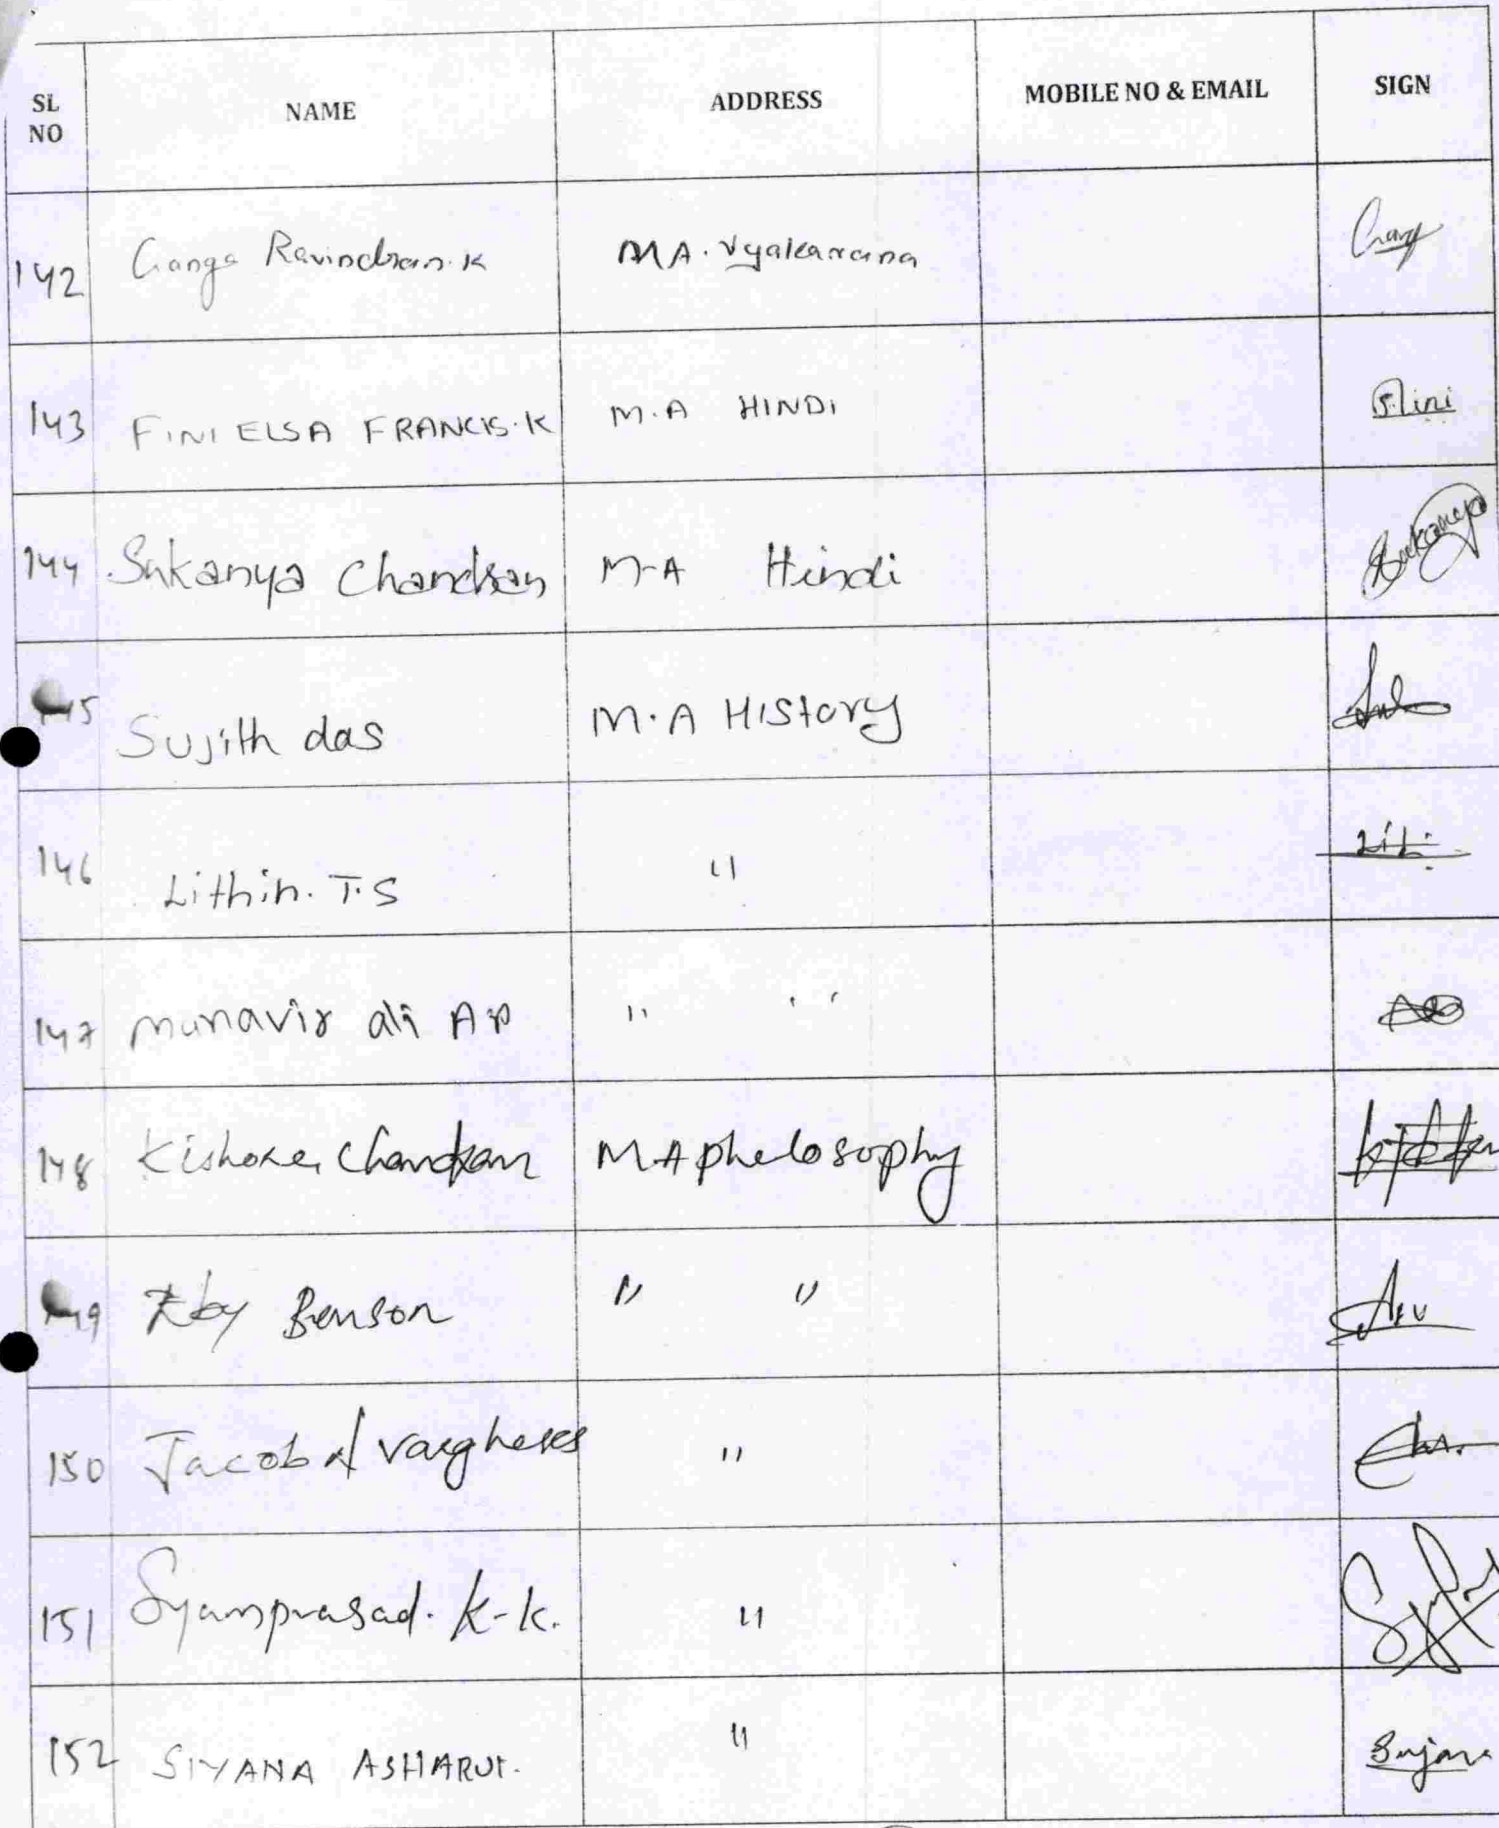 SL NO NAME ADDRESS MOBILE NO & EMAIL SIGN
142 Ganga Ravindran.K M A. Vyakarana
143 FINI ELSA FRANCIS.K M.A HINDI Fini
144 Sukanya Chandran M-A Hindi Sukanya
145 Sujith das M.A HIStory
146 Lithin. T.S "
147 Munavir ali AP " "
148 Kishore Chandran M.A phelosophy
149 Benson " "
150 Jacob Varghese "
151 Syamprasad. K-K. "
152 SIYANA ASHARUF. "